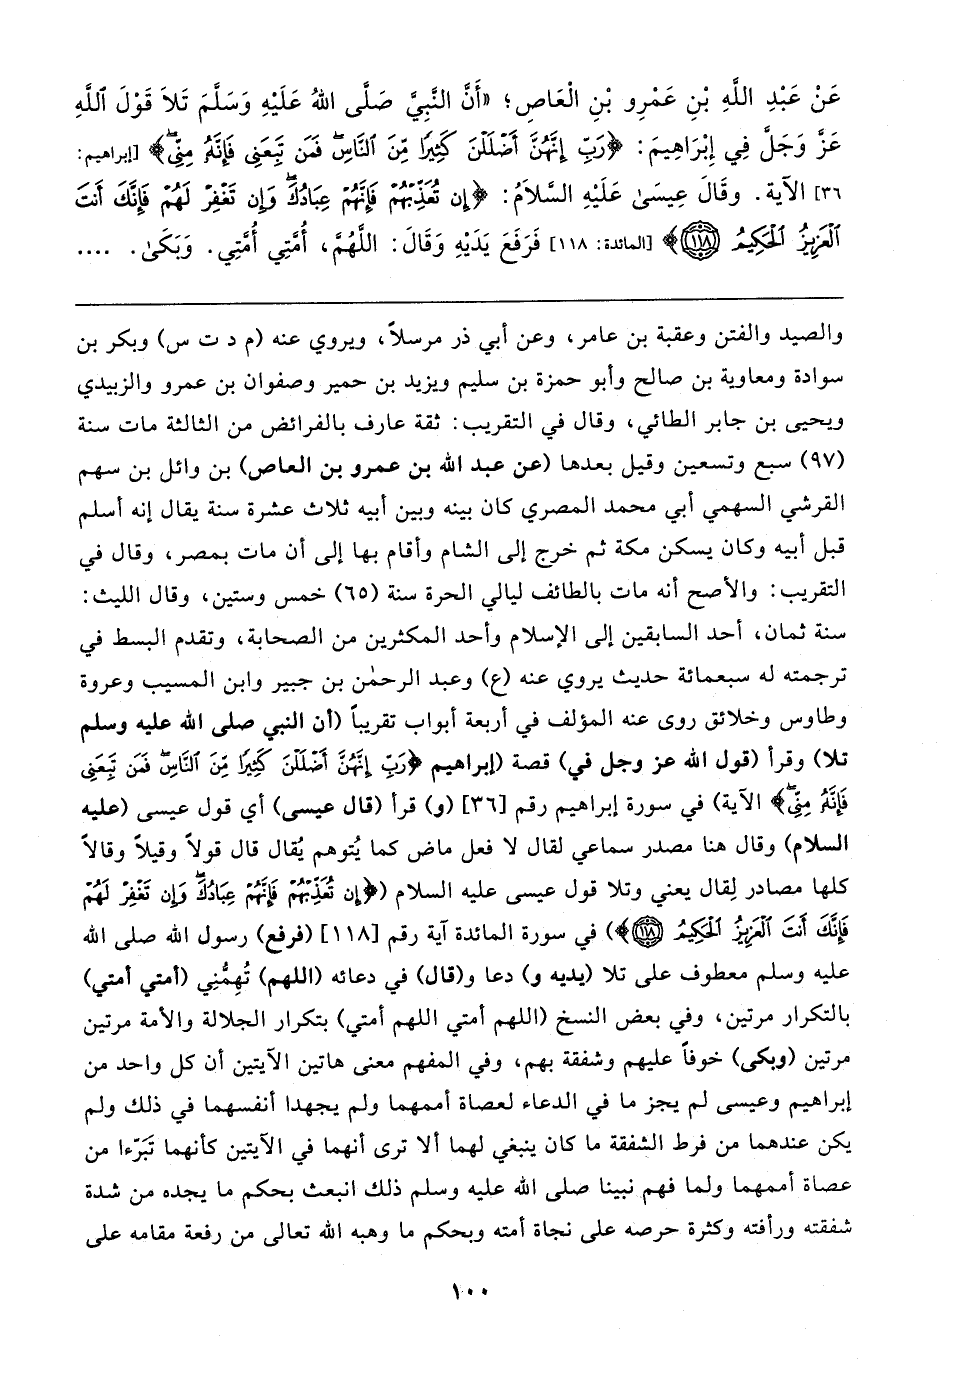 عَنْ عَبْدِ اللَّهِ بْنِ عَمْرِو بْنِ الْعَاصِ؛ «أَنَّ النَّبِيَّ صَلَّى اللهُ عَلَيْهِ وَسَلَّمَ تَلاَ قَوْلَ اللَّهِ
عَزَّ وَجَلَّ فِي إِبْرَاهِيمَ: ﴿رَبِّ إِنَّهُنَّ أَضْلَلْنَ كَثِيرًا مِّنَ ٱلنَّاسِۖ فَمَن تَبِعَنِي فَإِنَّهُۥ مِنِّيۖ﴾ [إبراهيم:
٣٦] الآيَةَ. وَقَالَ عِيسَىٰ عَلَيْهِ السَّلاَمُ: ﴿إِن تُعَذِّبْهُمْ فَإِنَّهُمْ عِبَادُكَۖ وَإِن تَغْفِرْ لَهُمْ فَإِنَّكَ أَنتَ
ٱلْعَزِيزُ ٱلْحَكِيمُ ١١٨﴾ [المائدة: ١١٨] فَرَفَعَ يَدَيْهِ وَقَالَ: اللَّهُمَّ، أُمَّتِي أُمَّتِي. وَبَكَىٰ. ....
والصيد والفتن وعقبة بن عامر، وعن أبي ذر مرسلاً، ويروي عنه (م د ت س) وبكر بن
سوادة ومعاوية بن صالح وأبو حمزة بن سليم ويزيد بن حمير وصفوان بن عمرو والزبيدي
ويحيى بن جابر الطائي، وقال في التقريب: ثقة عارف بالفرائض من الثالثة مات سنة
(٩٧) سبع وتسعين وقيل بعدها (عن عبد الله بن عمرو بن العاص) بن وائل بن سهم
القرشي السهمي أبي محمد المصري كان بينه وبين أبيه ثلاث عشرة سنة يقال إنه أسلم
قبل أبيه وكان يسكن مكة ثم خرج إلى الشام وأقام بها إلى أن مات بمصر، وقال في
التقريب: والأصح أنه مات بالطائف ليالي الحرة سنة (٦٥) خمس وستين، وقال الليث:
سنة ثمان، أحد السابقين إلى الإسلام وأحد المكثرين من الصحابة، وتقدم البسط في
ترجمته له سبعمائة حديث يروي عنه (ع) وعبد الرحمٰن بن جبير وابن المسيب وعروة
وطاوس وخلائق روى عنه المؤلف في أربعة أبواب تقريباً (أن النبي صلى الله عليه وسلم
تلا) وقرأ (قول الله عز وجل في) قصة (إبراهيم ﴿رَبِّ إِنَّهُنَّ أَضْلَلْنَ كَثِيرًا مِّنَ ٱلنَّاسِۖ فَمَن تَبِعَنِي
فَإِنَّهُۥ مِنِّيۖ﴾ الآية) في سورة إبراهيم رقم [٣٦] (و) قرأ (قال عيسى) أي قول عيسى (عليه
السلام) وقال هنا مصدر سماعي لقال لا فعل ماض كما يُتوهم يُقال قال قولاً وقيلاً وقالاً
كلها مصادر لِقال يعني وتلا قول عيسى عليه السلام (﴿إِن تُعَذِّبْهُمْ فَإِنَّهُمْ عِبَادُكَۖ وَإِن تَغْفِرْ لَهُمْ
فَإِنَّكَ أَنتَ ٱلْعَزِيزُ ٱلْحَكِيمُ ١١٨﴾) في سورة المائدة آية رقم [١١٨] (فرفع) رسول الله صلى الله
عليه وسلم معطوف على تلا (يديه و) دعا و(قال) في دعائه (اللهم) تُهِمُّنِي (أمتي أمتي)
بالتكرار مرتين، وفي بعض النسخ (اللهم أمتي اللهم أمتي) بتكرار الجلالة والأمة مرتين
مرتين (وبكى) خوفاً عليهم وشفقة بهم، وفي المفهم معنى هاتين الآيتين أن كل واحد من
إبراهيم وعيسى لم يجز ما في الدعاء لعصاة أممهما ولم يجهدا أنفسهما في ذلك ولم
يكن عندهما من فرط الشفقة ما كان ينبغي لهما ألا ترى أنهما في الآيتين كأنهما تَبَرّءا من
عصاة أممهما ولما فهم نبينا صلى الله عليه وسلم ذلك انبعث بحكم ما يجده من شدة
شفقته ورأفته وكثرة حرصه على نجاة أمته وبحكم ما وهبه الله تعالى من رفعة مقامه على
١٠٠